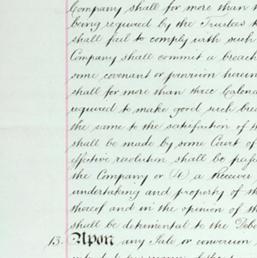 Company shall for more than
being required by the Trustees
shall fail to comply with such
Company shall commit a breach
some covenant or provision
shall for more than three
required to make good such
the same to the satisfaction of
shall be made by some Court of
effective resolution shall be
the Company or (4) a Receiver
undertaking and property of
thereof and in the opinion of
shall be detrimental to the
13. Upon any Sale or conversion